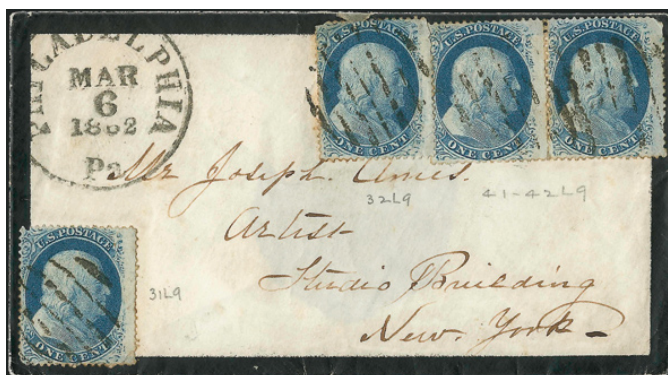 PHILADELPHIA
MAR
6
1862
Pa.
U.S. POSTAGE
ONE CENT
U.S. POSTAGE
ONE CENT
U.S. POSTAGE
ONE CENT
Mr Joseph. Ames.
32L9
41-42L9
Artist
Studio Building
New. York-
U.S. POSTAGE
ONE CENT
31L9